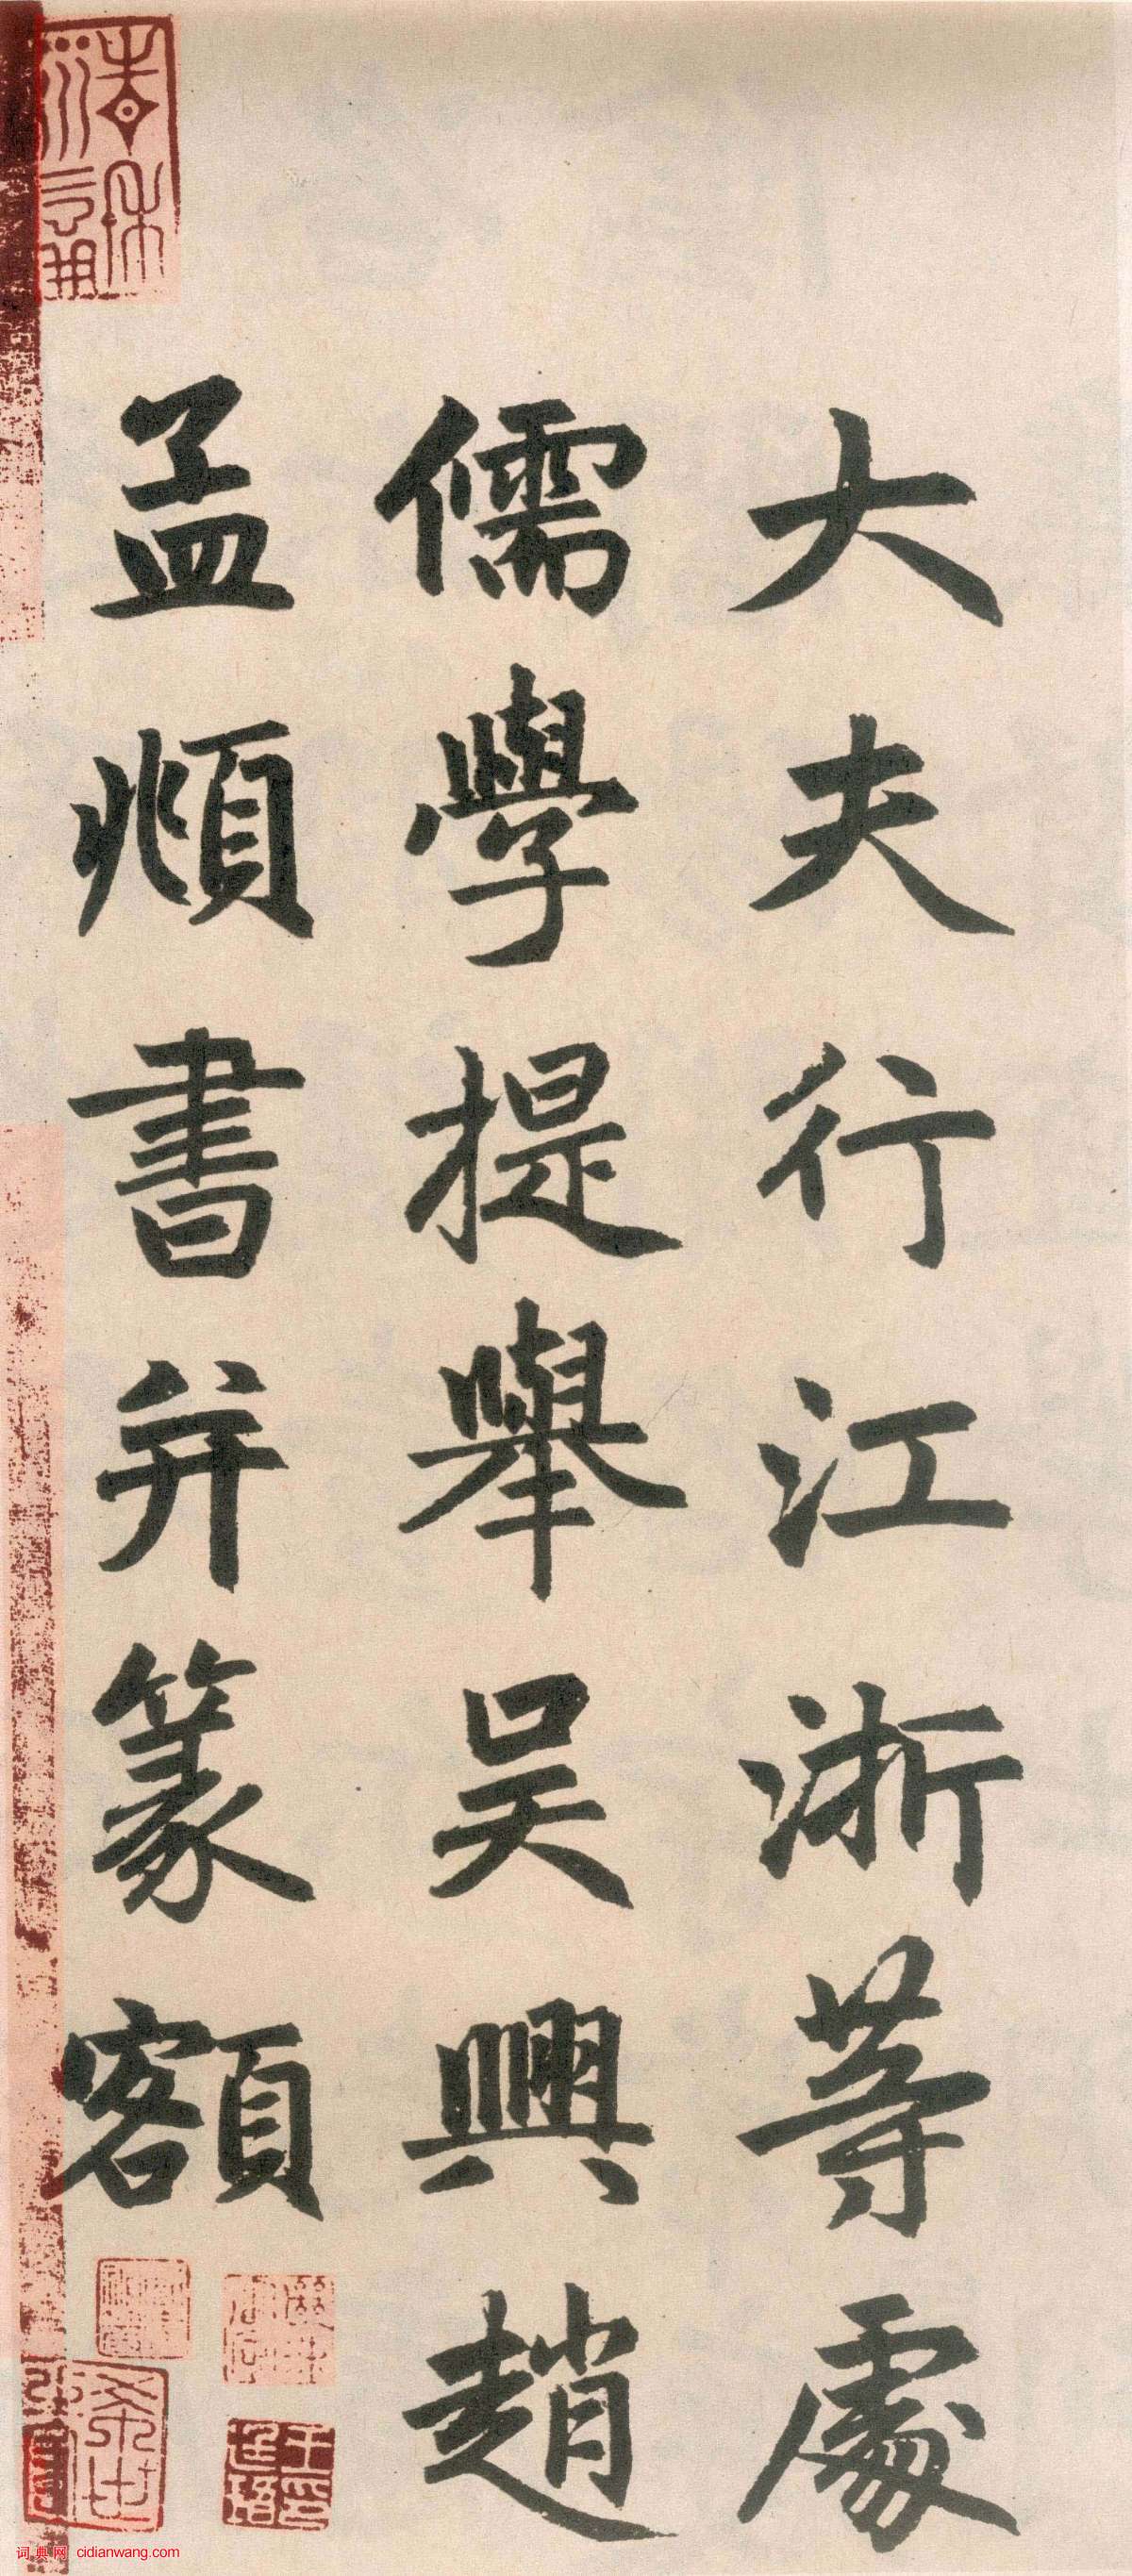 大夫行江浙等處
儒學提舉吳興趙
孟頫書并篆額
詞典网 cidianwang.com